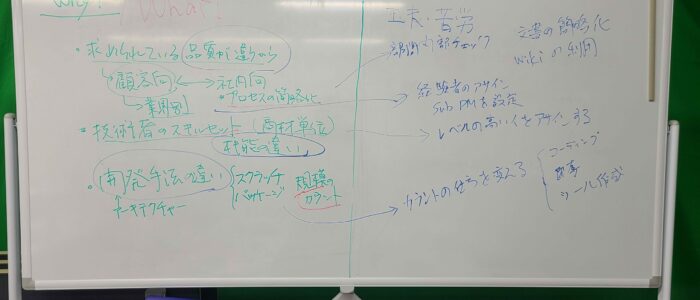 Why?
What?
・求められている品質が違うから
顧客向 ↔ 社内向
業界別
・プロセスの簡略化
・技術者のスキルセット (商材単位)
技能の違い
・開発手法の違い
アーキテクチャー
スクラッチ
パッケージ
規模の
カウント
工夫・苦労
チェック
文書の簡略化
wikiの利用
経験者のアサイン
Sub PMを設定
レベルの高い人をアサインする
カウントの仕方を変える
コーディング
ツール作成